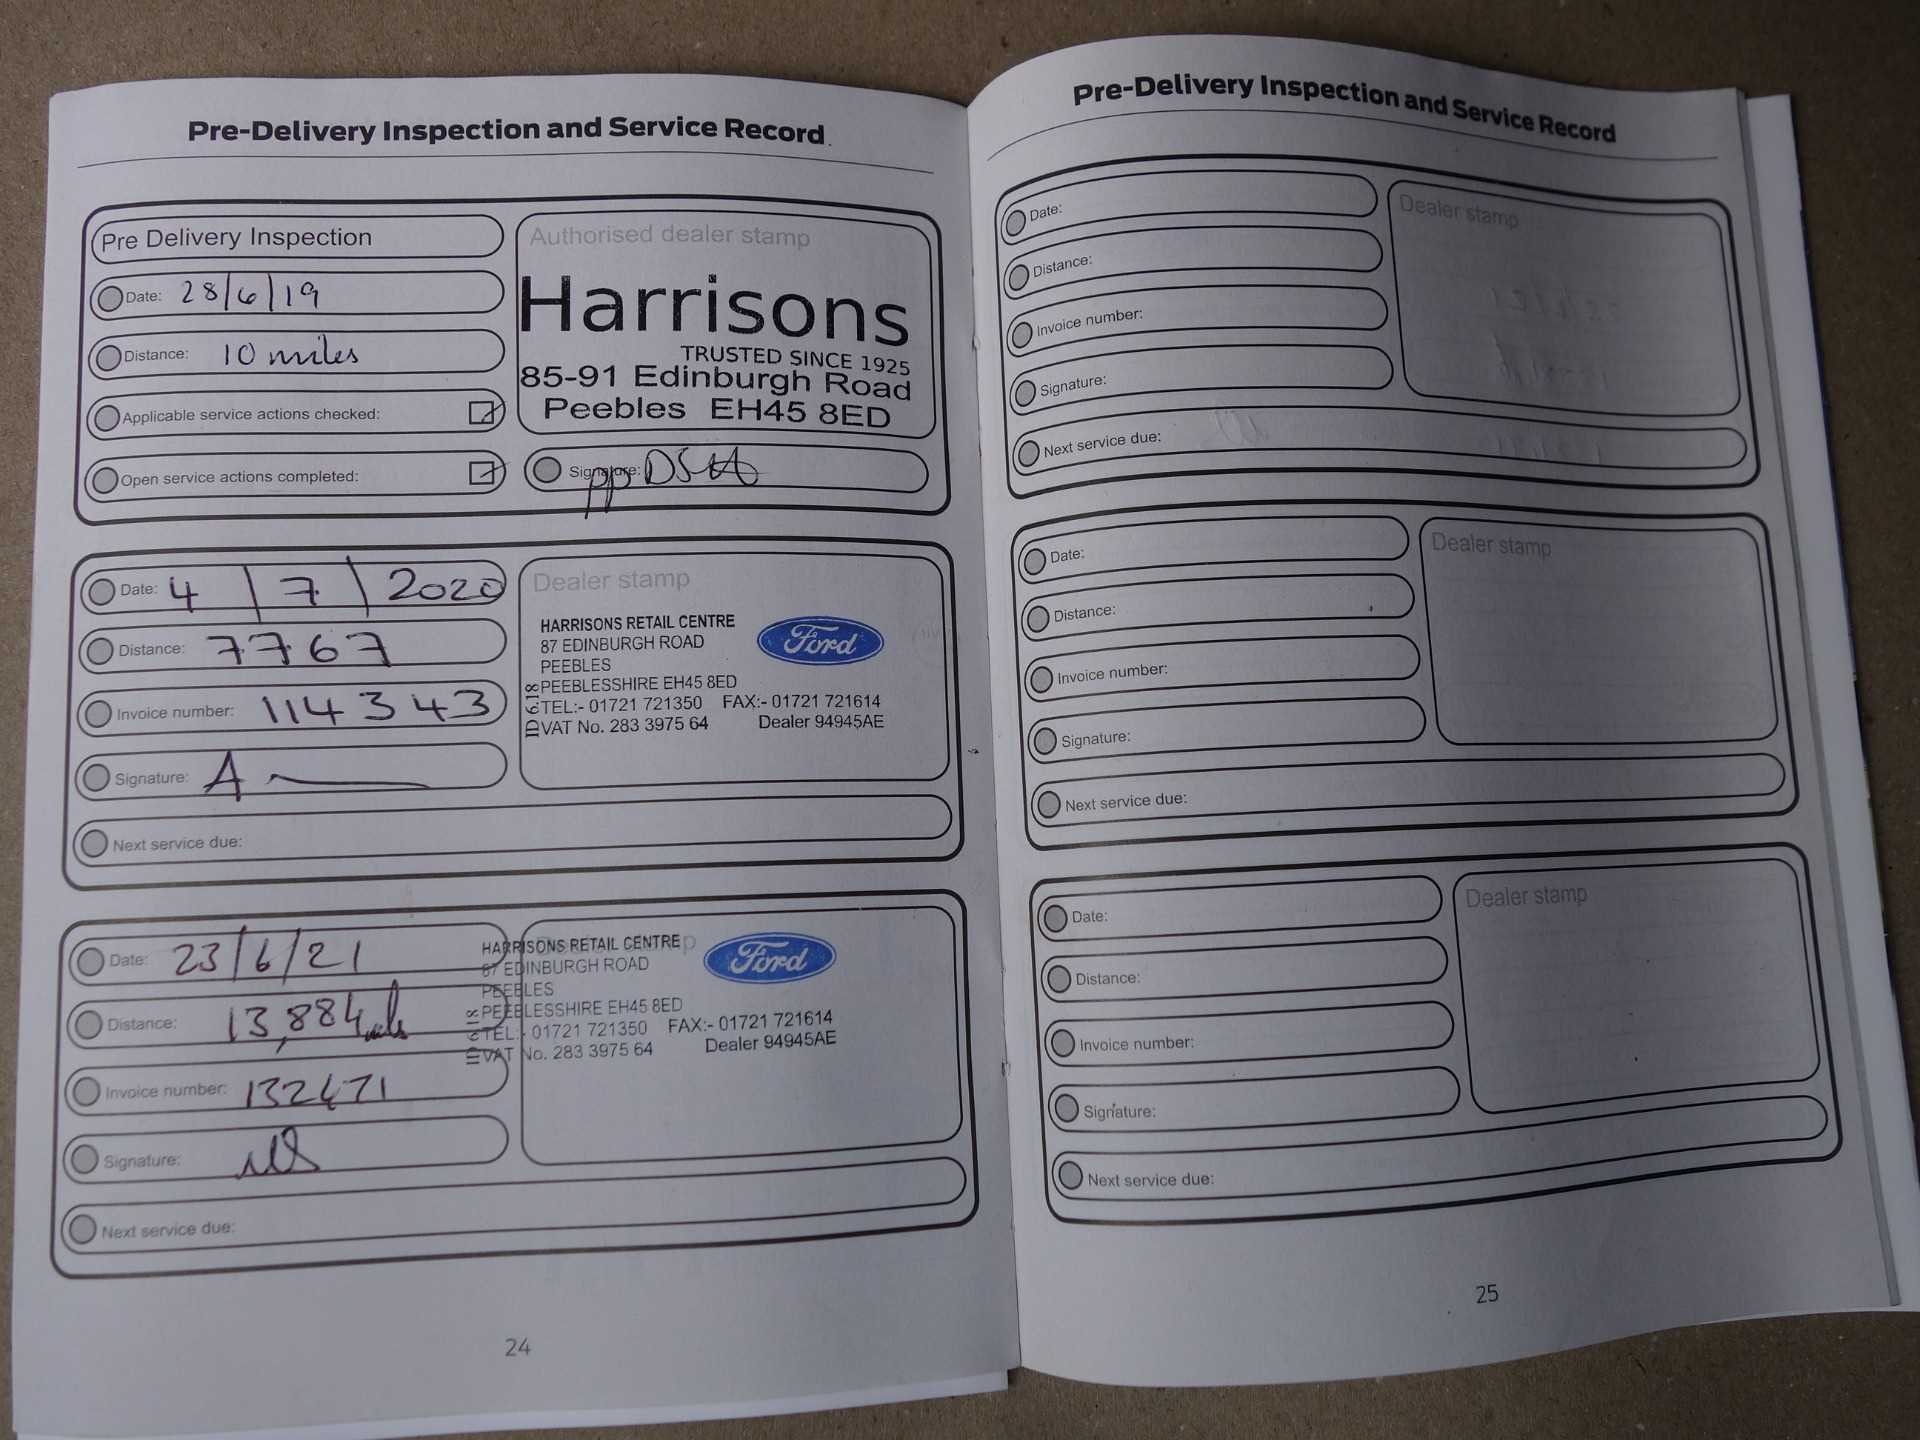 Pre-Delivery Inspection and Service Record
Pre Delivery Inspection
Date: 28/6/19
Distance: 10 miles
Applicable service actions checked:
Open service actions completed:
Authorised dealer stamp
Harrisons
TRUSTED SINCE 1925
85-91 Edinburgh Road
Peebles EH45 8ED
Signature: pp
Date: 4/7/2020
Distance: 7767
Invoice number: 114343
Signature:
Next service due:
Dealer stamp
HARRISONS RETAIL CENTRE
87 EDINBURGH ROAD
PEEBLES
PEEBLESSHIRE EH45 8ED
TEL:- 01721 721350 FAX:- 01721 721614
VAT No. 283 3975 64 Dealer 94945AE
ID 6.18
Ford
Date: 23/6/21
Distance: 13,884 mls
Invoice number: 132471
Signature:
Next service due:
HARRISONS RETAIL CENTRE
87 EDINBURGH ROAD
PEEBLES
PEEBLESSHIRE EH45 8ED
TEL:- 01721 721350 FAX:- 01721 721614
VAT No. 283 3975 64 Dealer 94945AE
Ford
24
Pre-Delivery Inspection and Service Record
Date:
Distance:
Invoice number:
Signature:
Next service due:
Dealer stamp
Date:
Distance:
Invoice number:
Signature:
Next service due:
Dealer stamp
Date:
Distance:
Invoice number:
Signature:
Next service due:
Dealer stamp
25